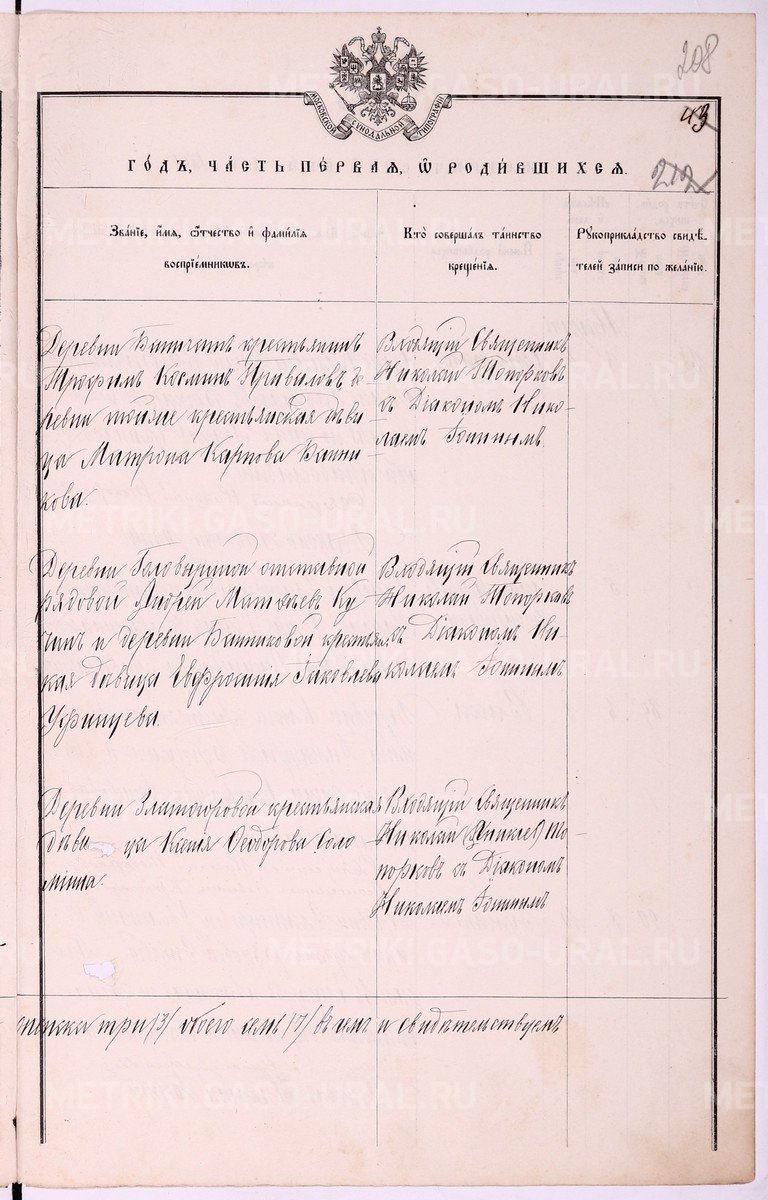 208
МОСКОВСКОЙ СѴНОДАЛЬНОЙ ТИПОГРАФІИ
43
212
ГО́ДЪ, ЧА́СТЬ ПЕ́РВАЯ, Ѡ҆ РОДИ́ВШИХСЯ.
Зва́нїе, и҆́мя, ѻ҆́тчество и҆ фами́лїя
воспрїе́мниковъ.
Кто̀ соверша́лъ та́инство
креще́нїя.
Рꙋкоприкла́дство свидѣ́-
телей за́писи по жела́нїю.
Деревни крестьянинъ
Трофимъ Космин Приваловъ де
ревни тойже крестьянская дѣви
ца Матрона Карпова Банни
кова.
Входящій Священникъ
Николай Топорковъ
съ Діакономъ Нико-
лаемъ
Деревни Головыриной отставной
рядовой Андрей Матѳѣевъ Ку
чин и деревни Банниковой крестьян
кая дѣвица Евфросинія Іаковлева
Уфинцева.
Входящій Священникъ
Николай Топорковъ
съ Діакономъ Ни-
колаемъ
Деревни Златогоровой крестьянская
дѣви ца Ксенія Ѳеодорова Соло
мина.
Входящій Священникъ
Николай То
порковъ съ Діакономъ
Николаемъ
три /3/ обоего семь /7/ въ чемъ и свидѣтельствуемъ
METRIKI.GASO-URAL.RU